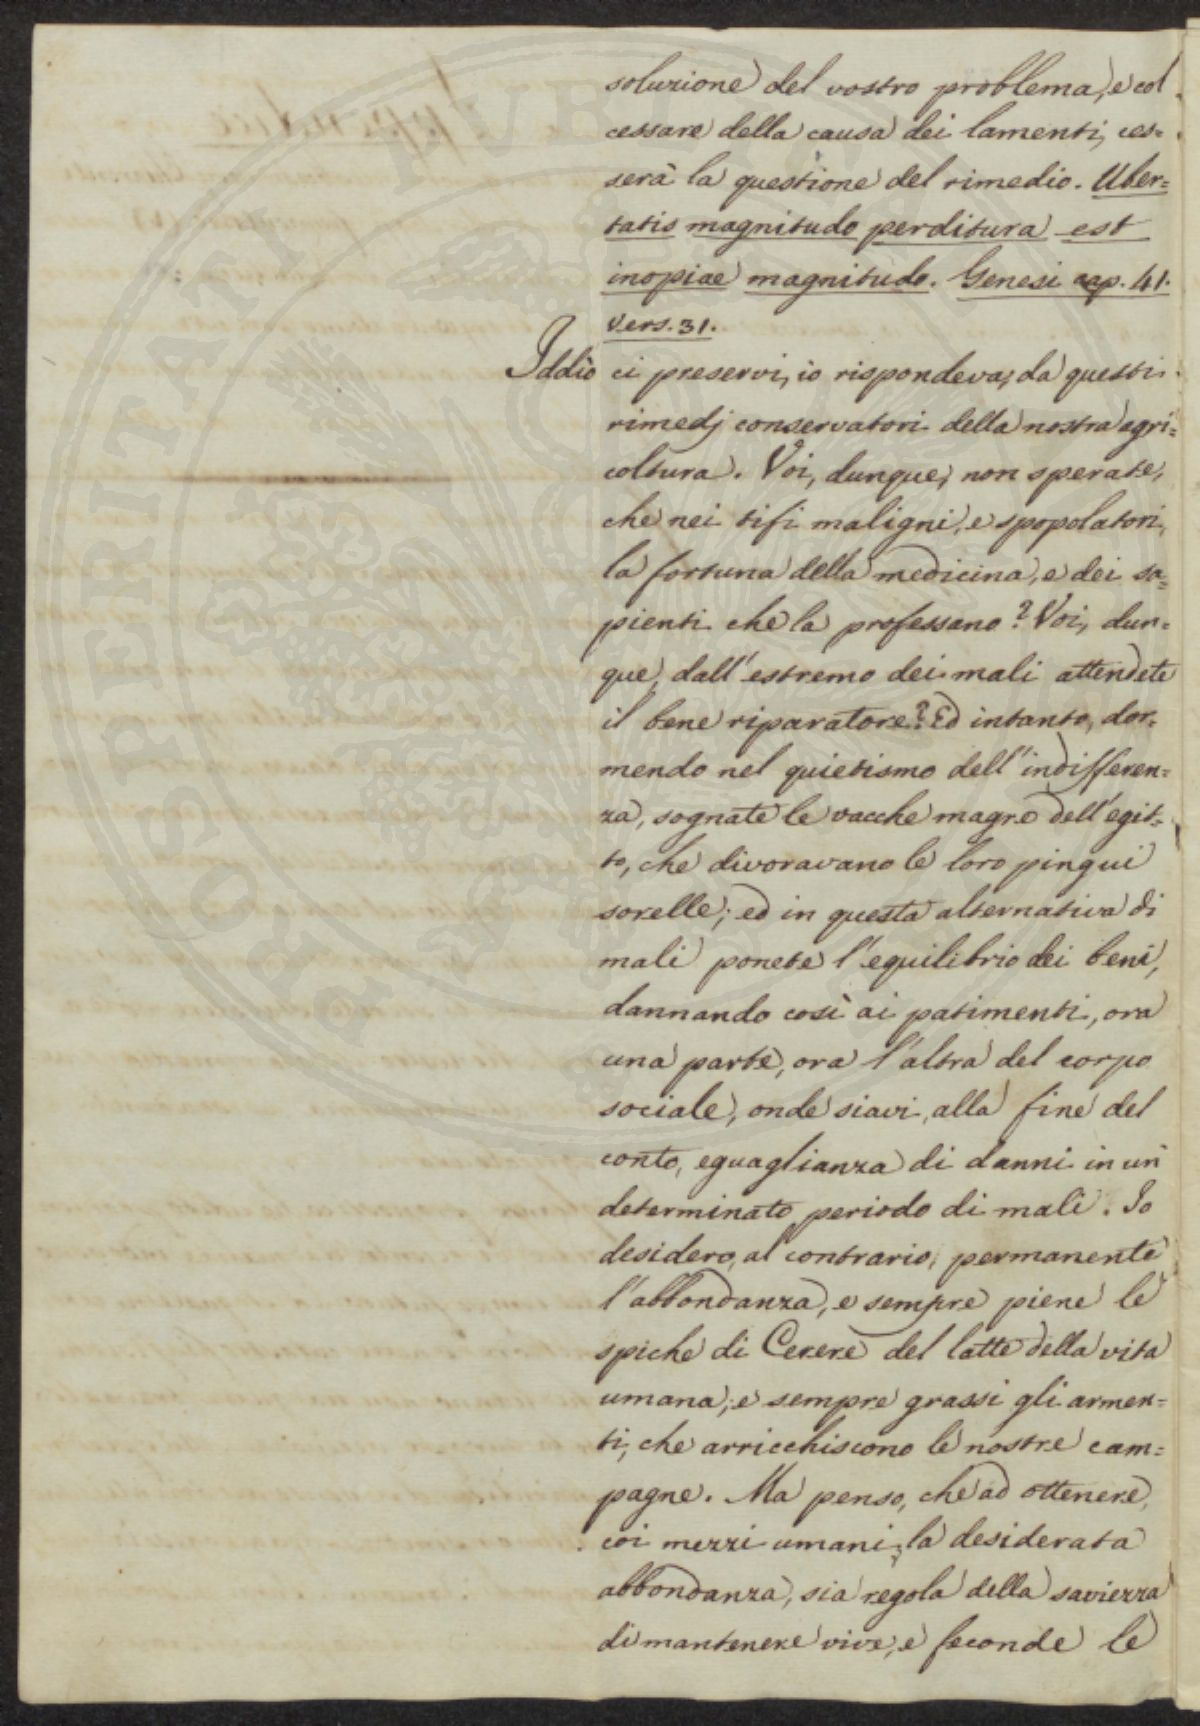 soluzione del vostro problema, e col
cessare della causa dei lamenti, ces=
serà la questione del rimedio. Uber=
tatis magnitudo perditura est
inopiae magnitudo. Genesi cap. 41.
vers. 31.
Iddio ci preservi, io rispondeva, da questi
rimedj conservatori della nostra agri=
coltura. Voi, dunque, non sperate,
che nei tifi maligni, e spopolatori,
la fortuna della medicina, e dei sa=
pienti che la professano? Voi, dun=
que, dall'estremo dei mali attendete
il bene riparatore? Ed intanto, dor=
mendo nel quietismo dell'indifferen=
za, sognate le vacche magre dell'egit=
to, che divoravano le loro pingui
sorelle; ed in questa alternativa di
mali ponete l'equilibrio dei beni,
dannando così ai patimenti, ora
una parte, ora l'altra del corpo
sociale, onde siavi, alla fine del
conto, eguaglianza di danni in un
determinato periodo di mali. Io
desidero, al contrario, permanente
l'abbondanza, e sempre piene le
spiche di Cerere del latte della vita
umana; e sempre grassi gli armen=
ti, che arricchiscono le nostre cam=
pagne. Ma penso, che ad ottenere,
coi mezzi umani, la desiderata
abbondanza, sia regola della saviezza
di mantenere vive, e feconde le
PROSPERITATI AUR